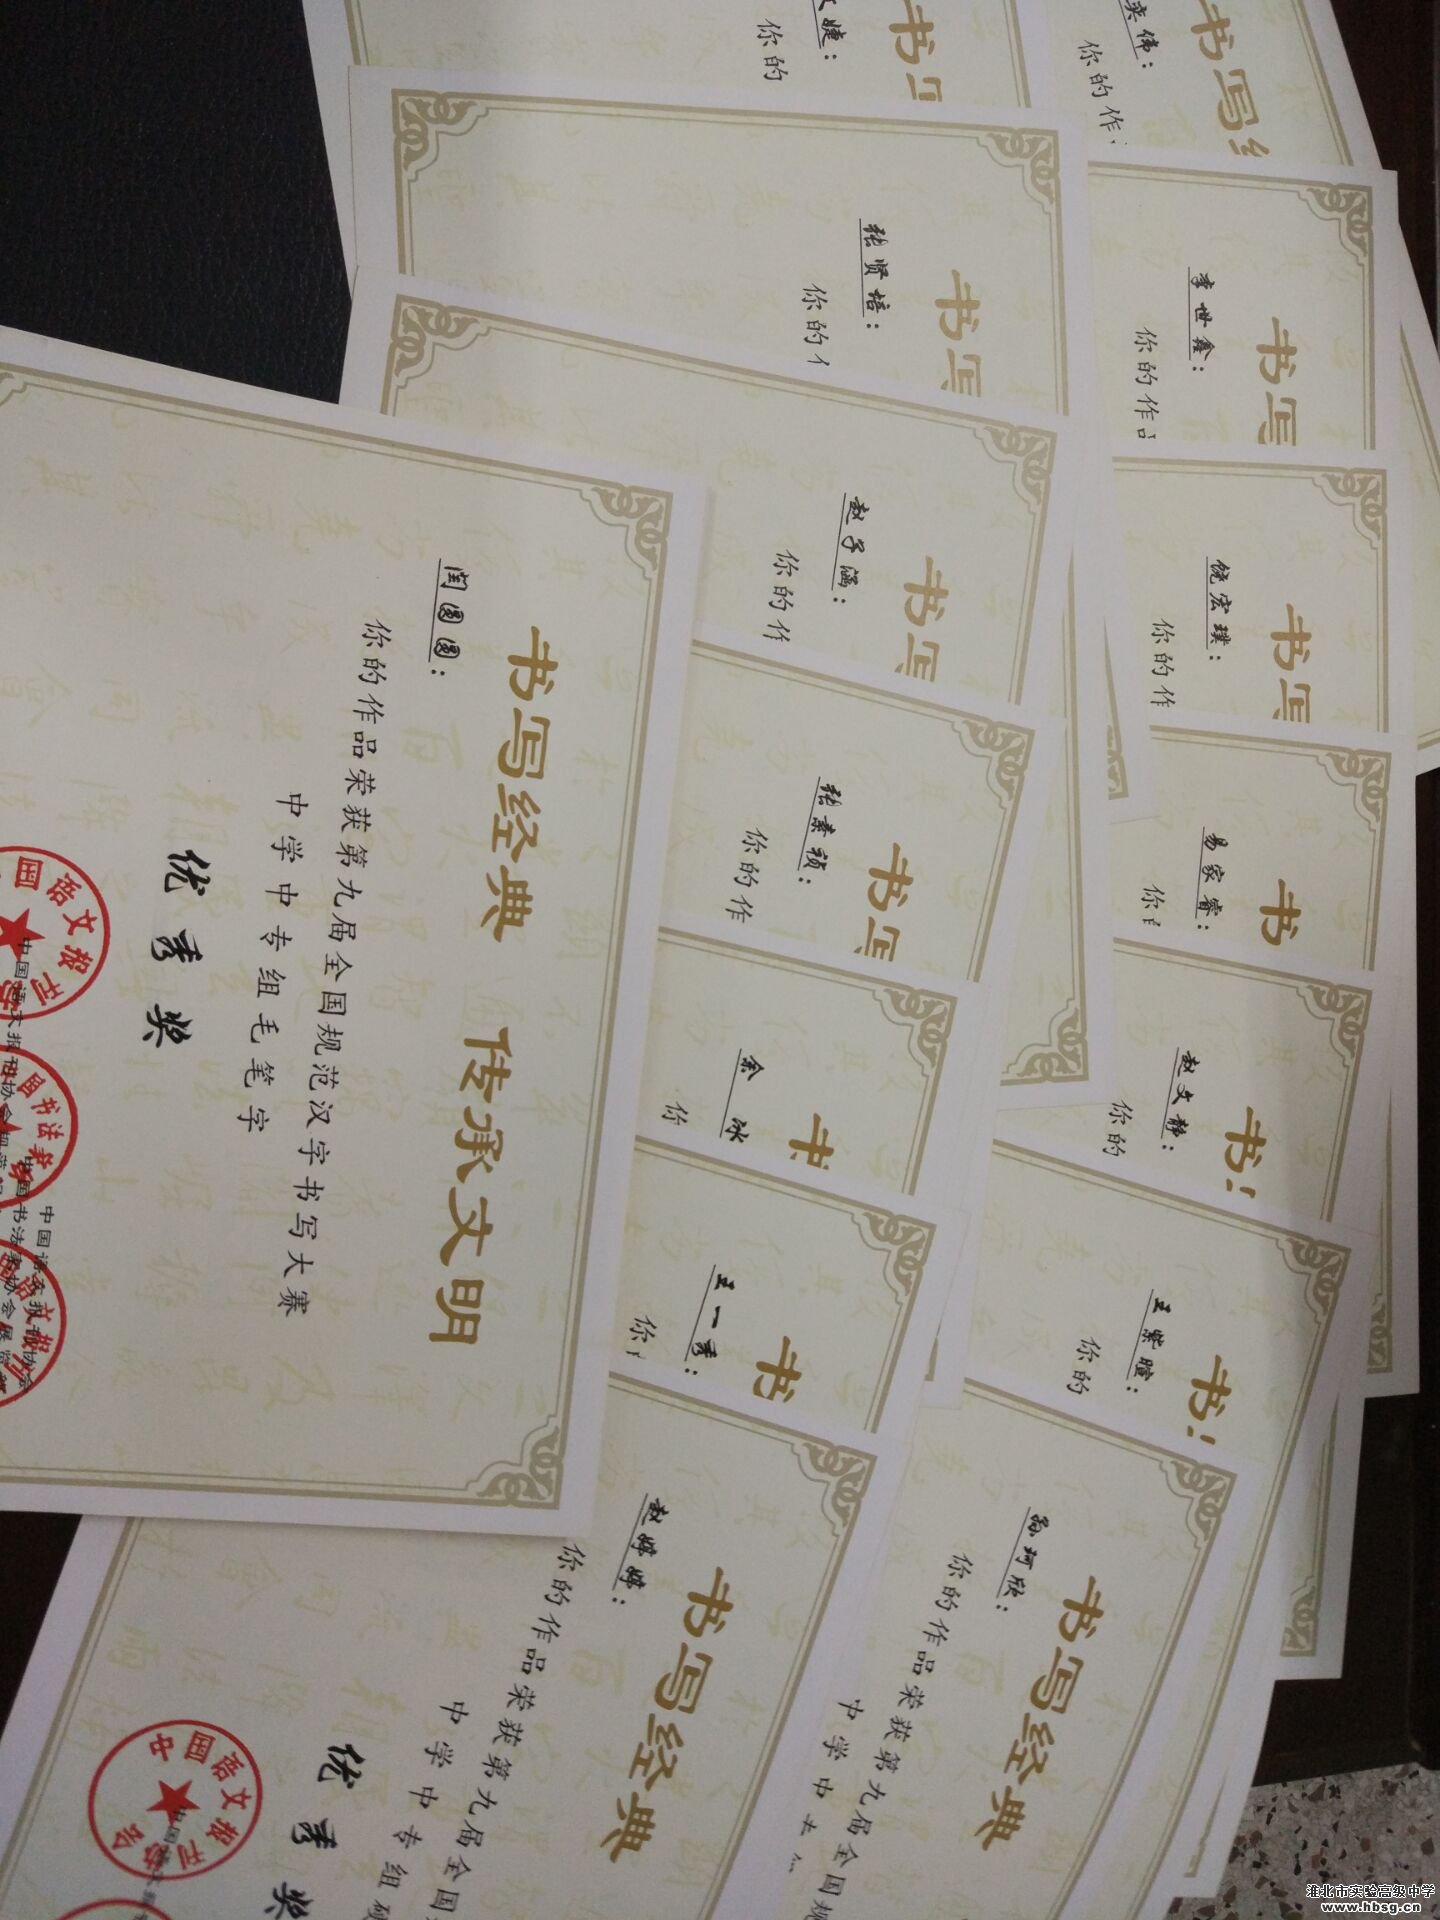 书写经典 传承文明
闫圆圆：
你的作品荣获第九届全国规范汉字书写大赛
中学中专组毛笔字
优秀奖
捷：
你的
奕伟：
你的作
书写
书写经
张贤培：
你的
书写
李世鑫：
你的作品
书写
赵子涵：
你的作
书写
饶宏璞：
你的作
书写
张素祯：
你的作
书写
易家睿：
你的
书
余冰
你
书
赵文静：
你的
书写
王一秀：
你的
书
王紫暄：
你的
书写
书写经典
赵婷婷：
你的作品荣获第九届全国
中学中专组硬
优秀奖
中国语文报刊协会
书写经典
珂欣：
你的作品荣获第九届全国规
中学中专
淮北市实验高级中学
www.hbsg.cn